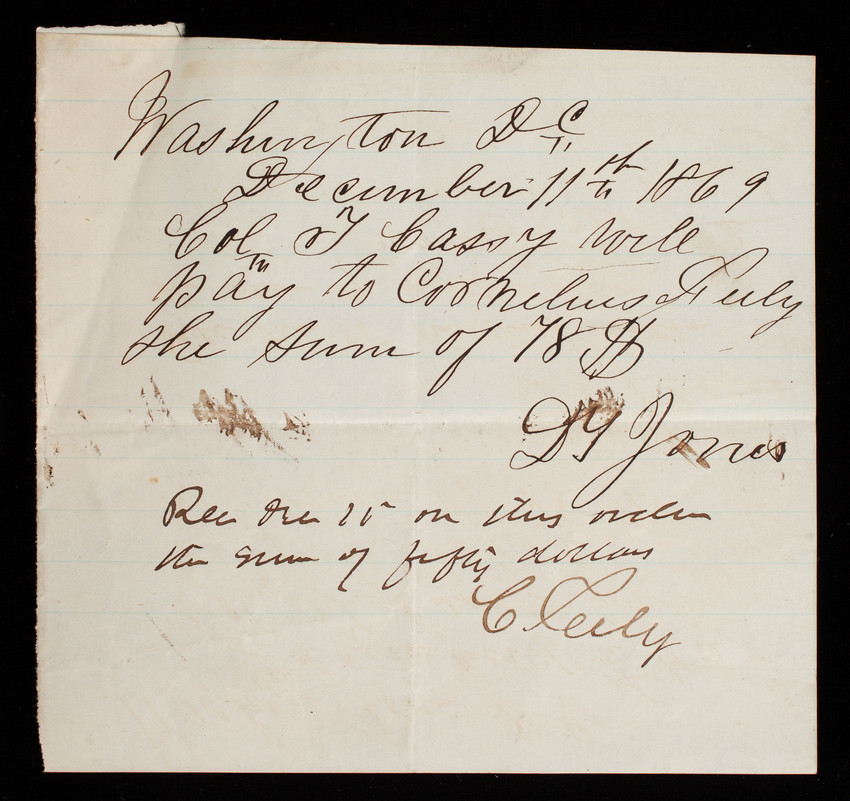 Washington DC
December 11th 1869
Col T Casey Will
pay to Cornelius Feely
the sum of 78 $
D Y Jones
Rec Dec 15 on this order
the sum of fifty dollars
C Feely